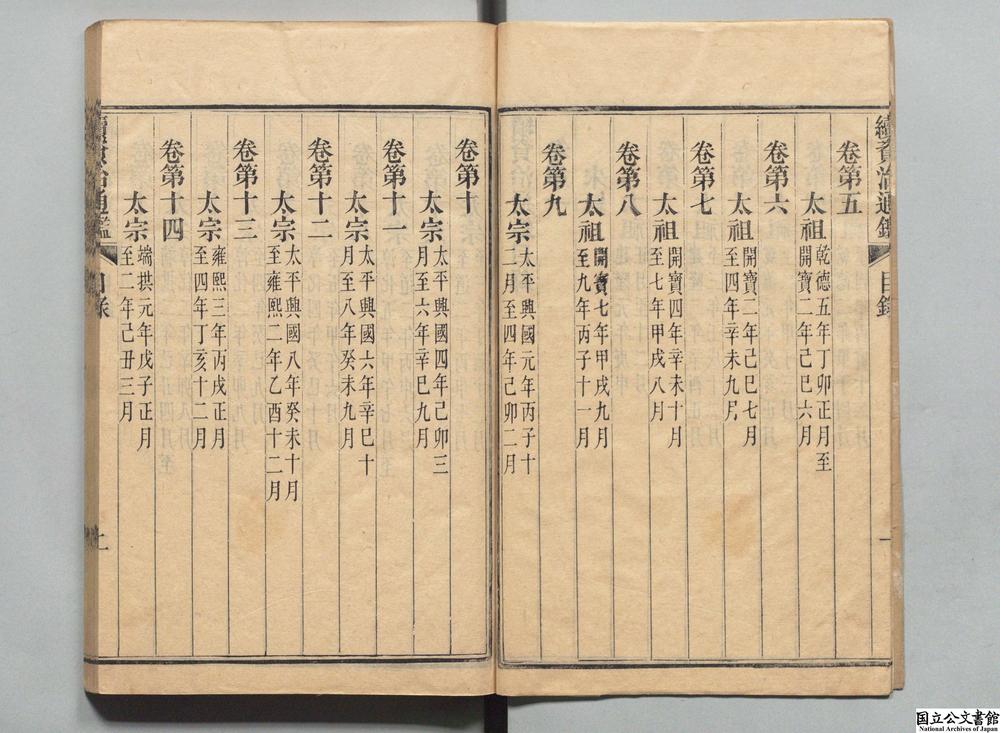 續資治通鑑 目錄 一
卷第五
太祖 乾德五年丁卯正月至
開寶二年己巳六月
卷第六
太祖 開寶二年己巳七月
至四年辛未九月
卷第七
太祖 開寶四年辛未十月
至七年甲戌八月
卷第八
太祖 開寶七年甲戌九月
至九年丙子十一月
卷第九
太宗 太平興國元年丙子十
二月至四年己卯二月
卷第十
太宗 太平興國四年己卯三
月至六年辛巳九月
卷第十一
太宗 太平興國六年辛巳十
月至八年癸未九月
卷第十二
太宗 太平興國八年癸未十月
至雍熙二年乙酉十二月
卷第十三
太宗 雍熙三年丙戌正月
至四年丁亥十二月
卷第十四
太宗 端拱元年戊子正月
至二年己丑三月
續資治通鑑 目錄 二
国立公文書館
National Archives of Japan